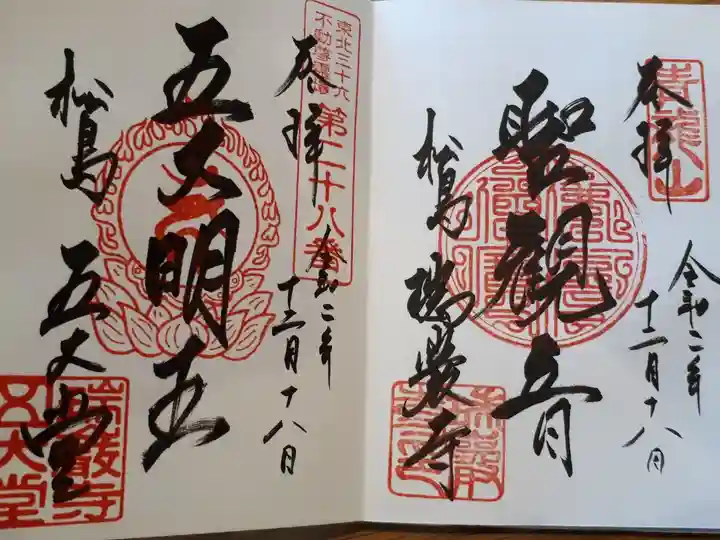 青龍山
奉拝
令和二年
十二月十八日
聖観音
松島 瑞巌寺
東北三十六
不動尊霊場
第二十八番
奉拝
令和二年
十二月十八日
五大明王
松島 五大堂
瑞巌寺
五大堂